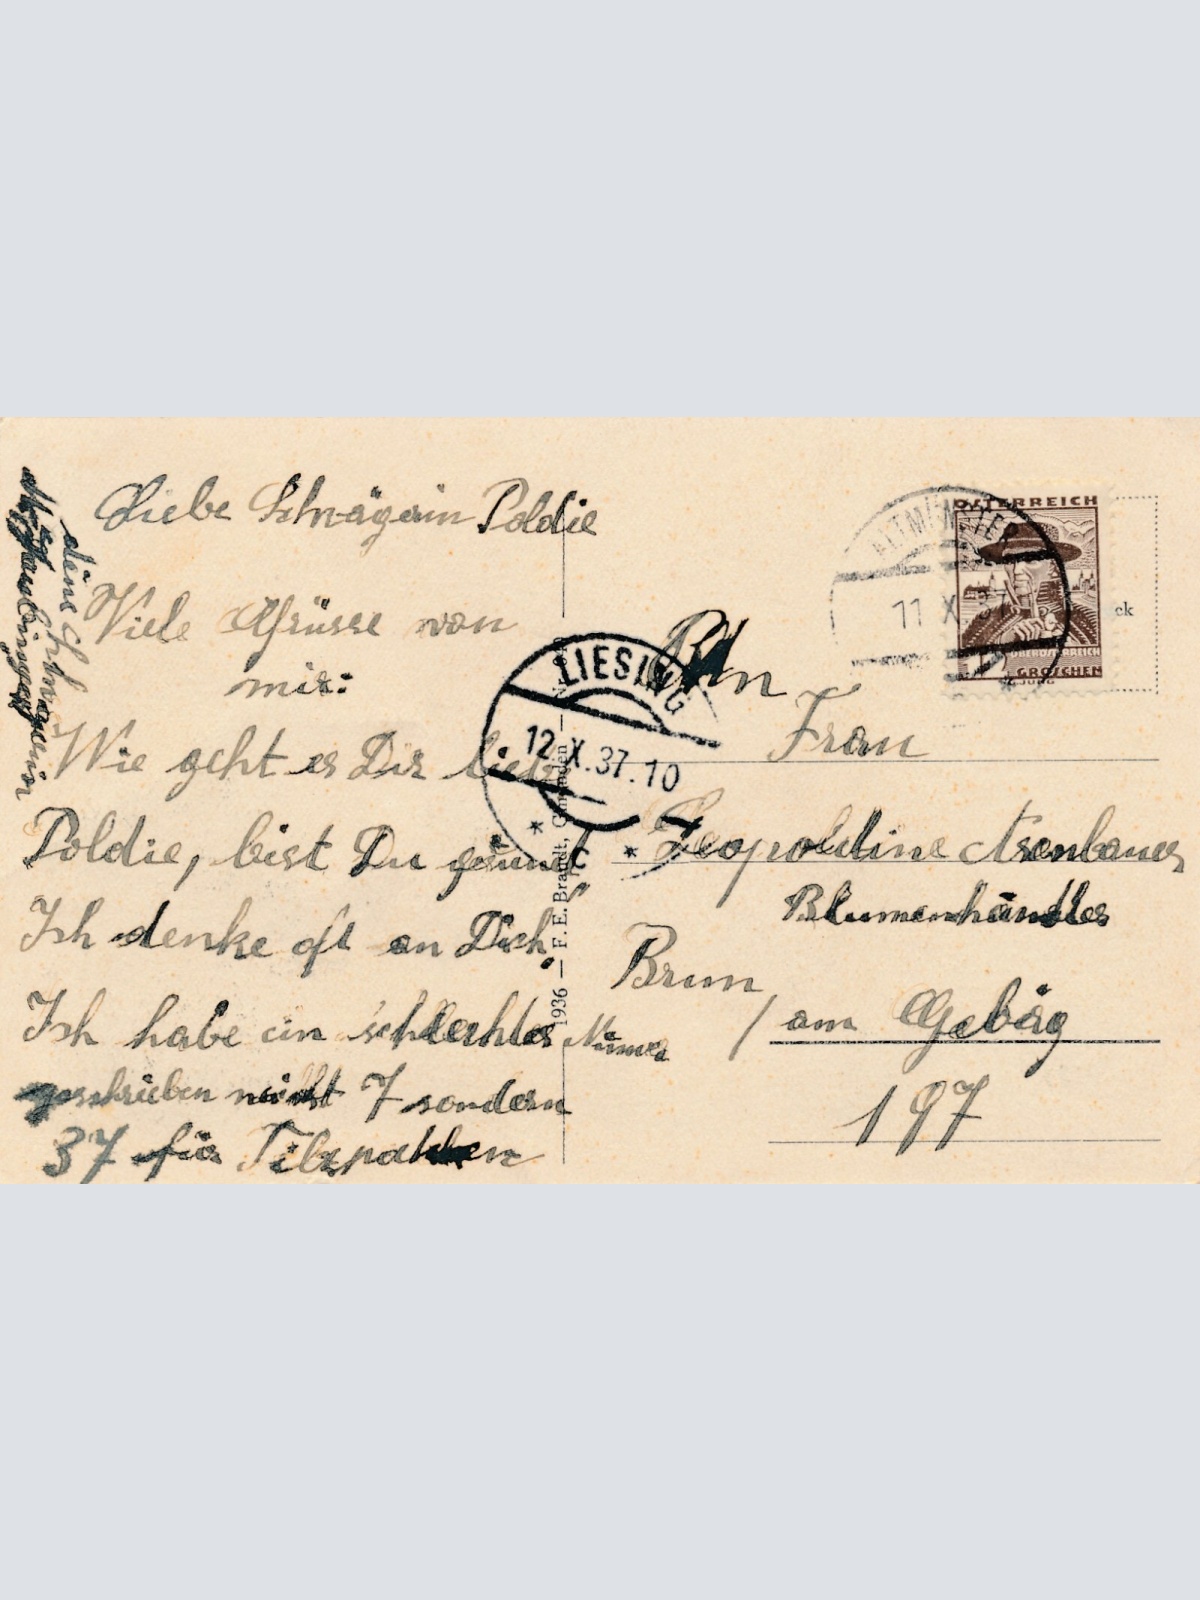 Liebe Schwägerin Poldie
Viele Grüsse von
mir:
Wie geht es Dir liebe
Poldie, bist Du gesund
Ich denke oft an Dich,
Ich habe ein schlechtes Numer
geschrieben nicht 7 sondern
37 für
deine Schwägerin
An
Frau
Leopoldine
Blumenhändler
Brun
/ am Gebirg
197
ALTMÜNSTER
11 X 37
ÖSTERREICH
OBERÖSTERREICH
GROSCHEN
JUNG
ck
LIESING
12.X.37.10
1936 — F. E. Brandt, Gmunden —